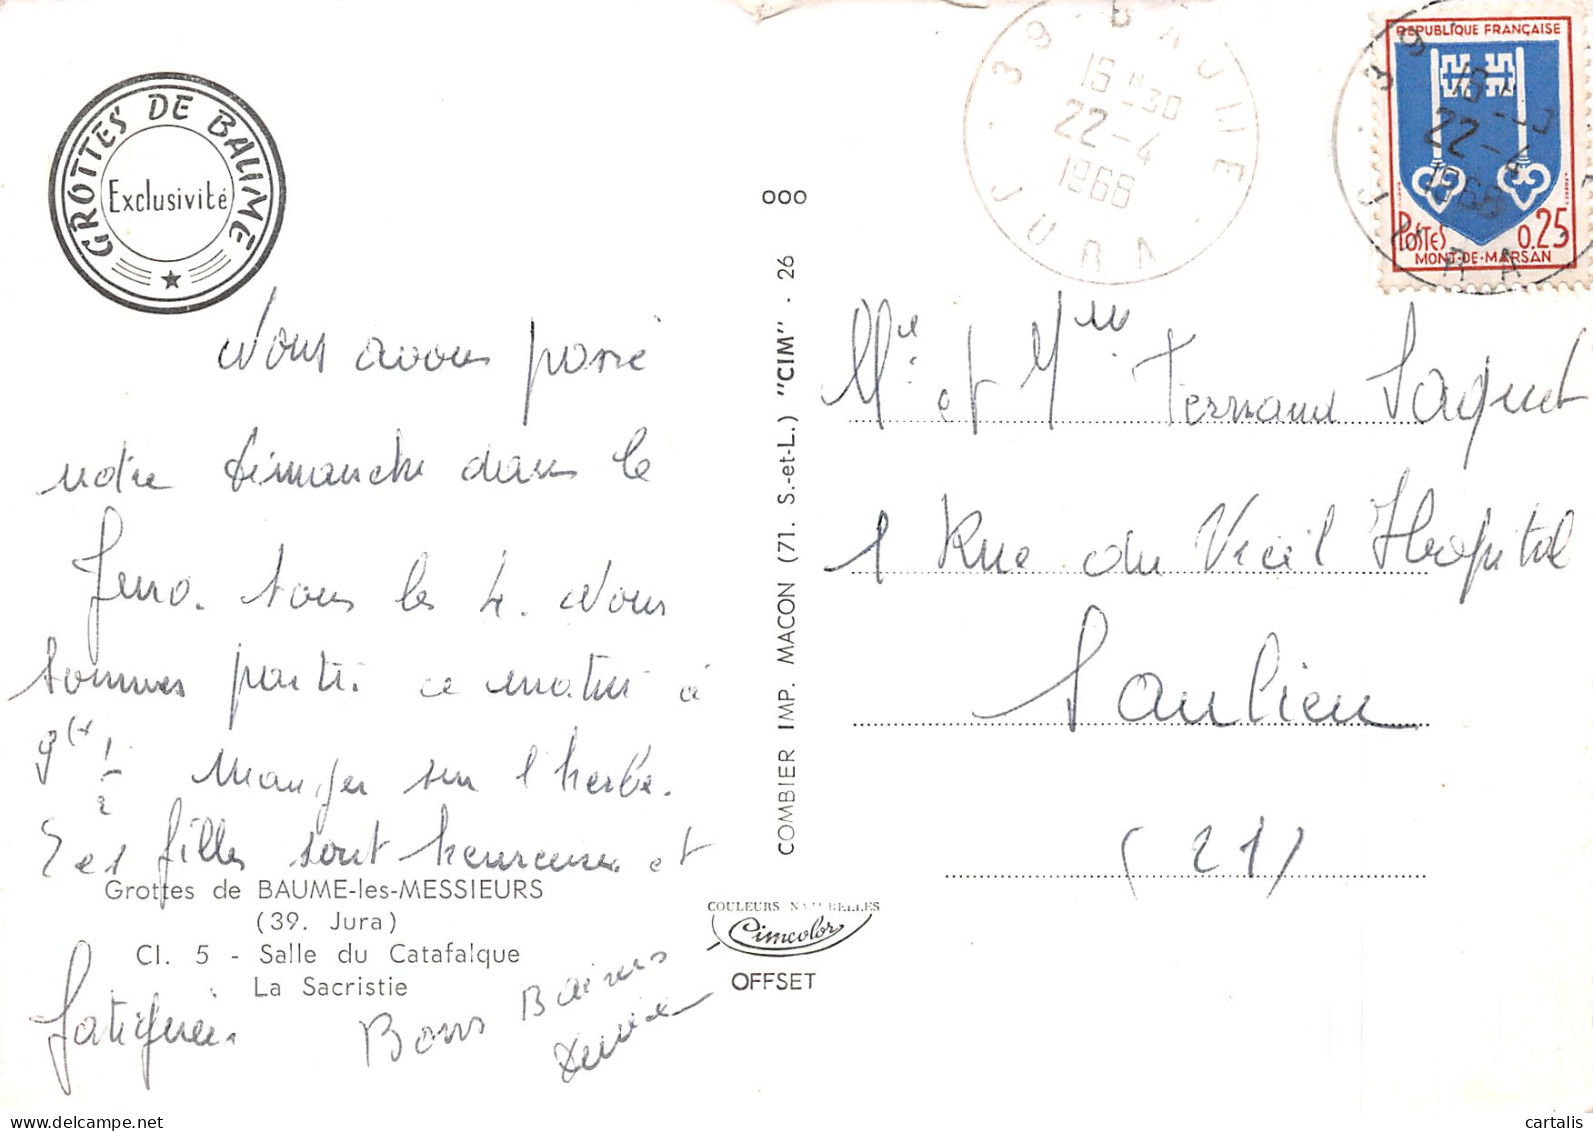 GROTTES DE BAUME
Exclusivité
Nous avons passé
notre dimanche dans le
Jura. tous les 4. Nous
sommes partis ce matin à
9h 1/2 manger sur l'herbe.
Les filles sont heureuses et
fatiguées.
Bons Baisers
Denise
Grottes de BAUME-les-MESSIEURS
(39. Jura)
Cl. 5 - Salle du Catafalque
La Sacristie
COMBIER IMP. MACON (71. S.-et-L.) "CIM" - 26
000
COULEURS NATURELLES
Cimcolor
OFFSET
39 - BAUME
16 H 30
22-4
1968
JURA
REPUBLIQUE FRANÇAISE
POSTES 0.25
MONT-DE-MARSAN
39
16
22-4
1968
JURA
Mr et Mme Fernand Jaquet
1 Rue du Vieil Hopital
Saulieu
(21)
cartalis